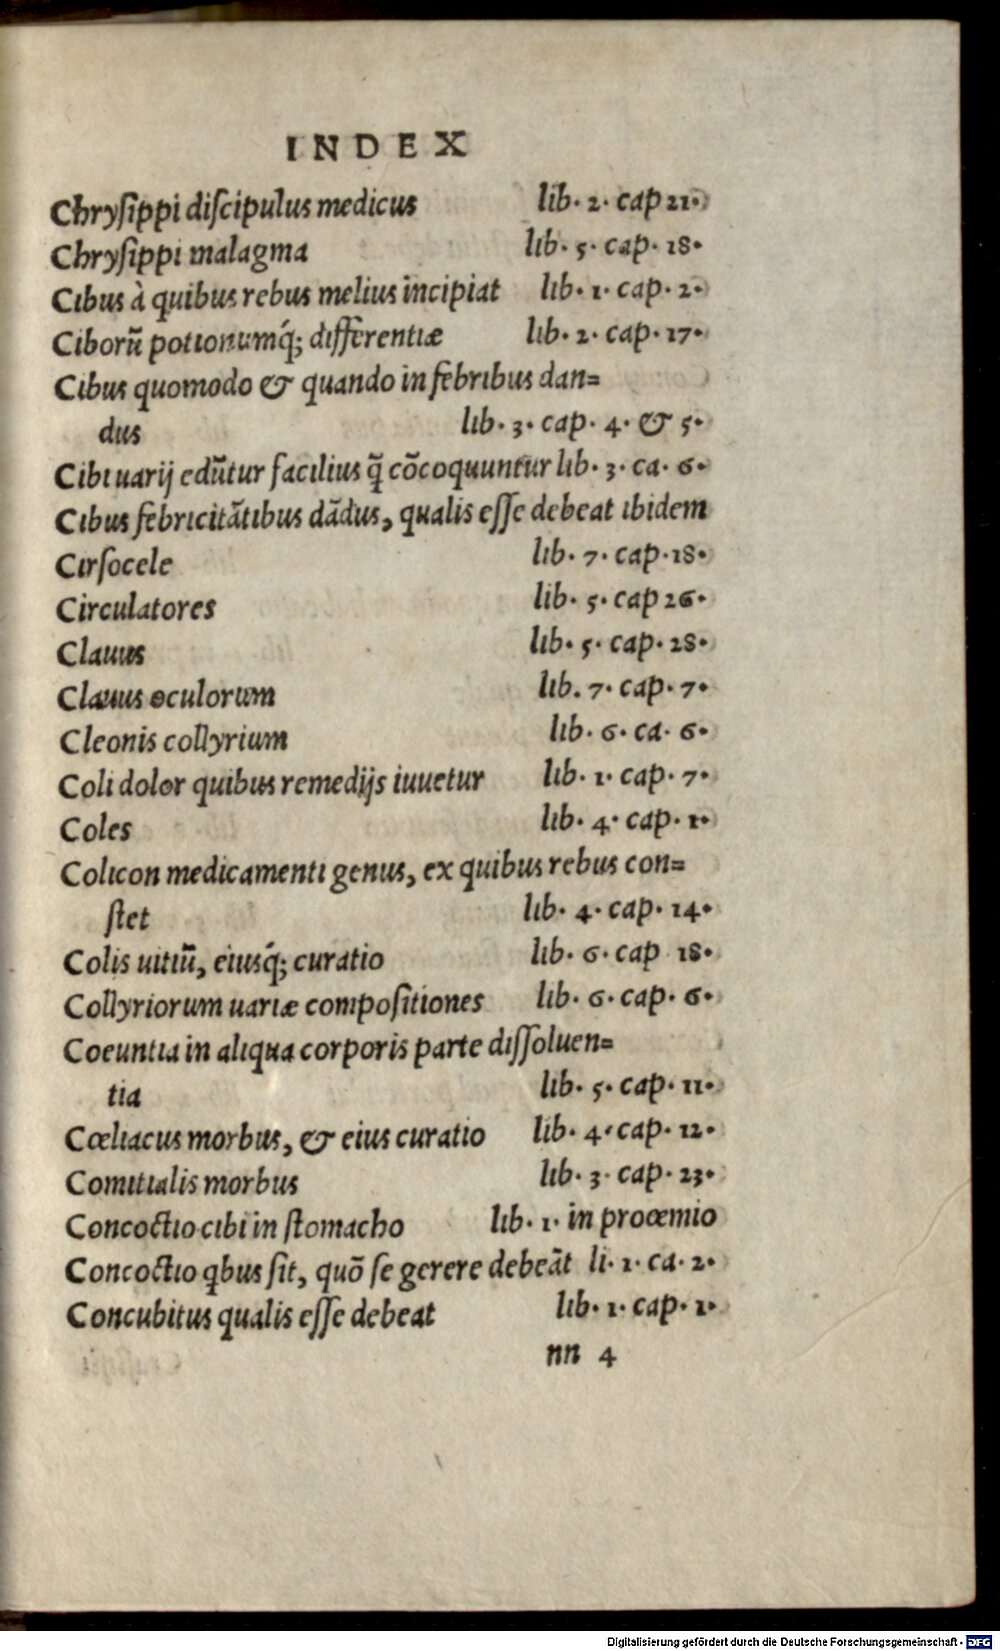 INDEX
Chryſippi diſcipulus medicus lib. 2. cap 21.
Chryſippi malagma lib. 5. cap. 18.
Cibus à quibus rebus melius incipiat lib. 1. cap. 2.
Ciborũ potionumq́; differentiæ lib. 2. cap. 17.
Cibus quomodo & quando in febribus dan=
dus lib. 3. cap. 4. & 5.
Cibi uarij edũtur facilius q̃ cõcoquuntur lib. 3. ca. 6.
Cibus febricitãtibus dãdus, qualis eſſe debeat ibidem
Cirſocele lib. 7. cap. 18.
Circulatores lib. 5. cap 26.
Clauus lib. 5. cap. 28.
Clauus oculorum lib. 7. cap. 7.
Cleonis collyrium lib. 6. ca. 6.
Coli dolor quibus remedijs iuuetur lib. 1. cap. 7.
Coles lib. 4. cap. 1.
Colicon medicamenti genus, ex quibus rebus con=
ſtet lib. 4. cap. 14.
Colis uitiũ, eiusq́; curatio lib. 6. cap 18.
Collyriorum uariæ compoſitiones lib. 6. cap. 6.
Coeuntia in aliqua corporis parte diſſoluen=
tia lib. 5. cap. 11.
Cœliacus morbus, & eius curatio lib. 4. cap. 12.
Comitialis morbus lib. 3. cap. 23.
Concoctio cibi in ſtomacho lib. 1. in proœmio
Concoctio qbus ſit, quõ ſe gerere debeãt li. 1. ca. 2.
Concubitus qualis eſſe debeat lib. 1. cap. 1.
nn 4
Digitalisierung gefördert durch die Deutsche Forschungsgemeinschaft - DFG